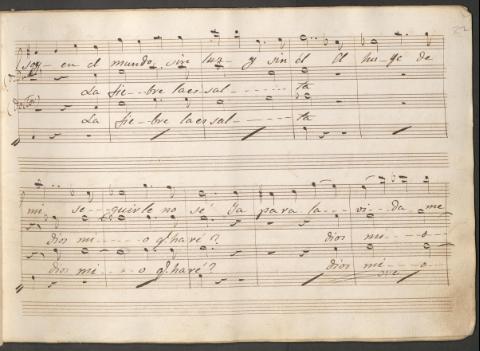 soy - en el mundo, sin luz - y sin él Al huye de
La fie - - bre la exsal - - - - - - ta
La fie - - bre la exsal - - - - - - ta
mi se - - guirle no sé Ya para la - - vi - da me
dios mi - - - - o q.e haré? dios mi - - - o
dios mi - - - - o q.e haré? dios mi - - - o